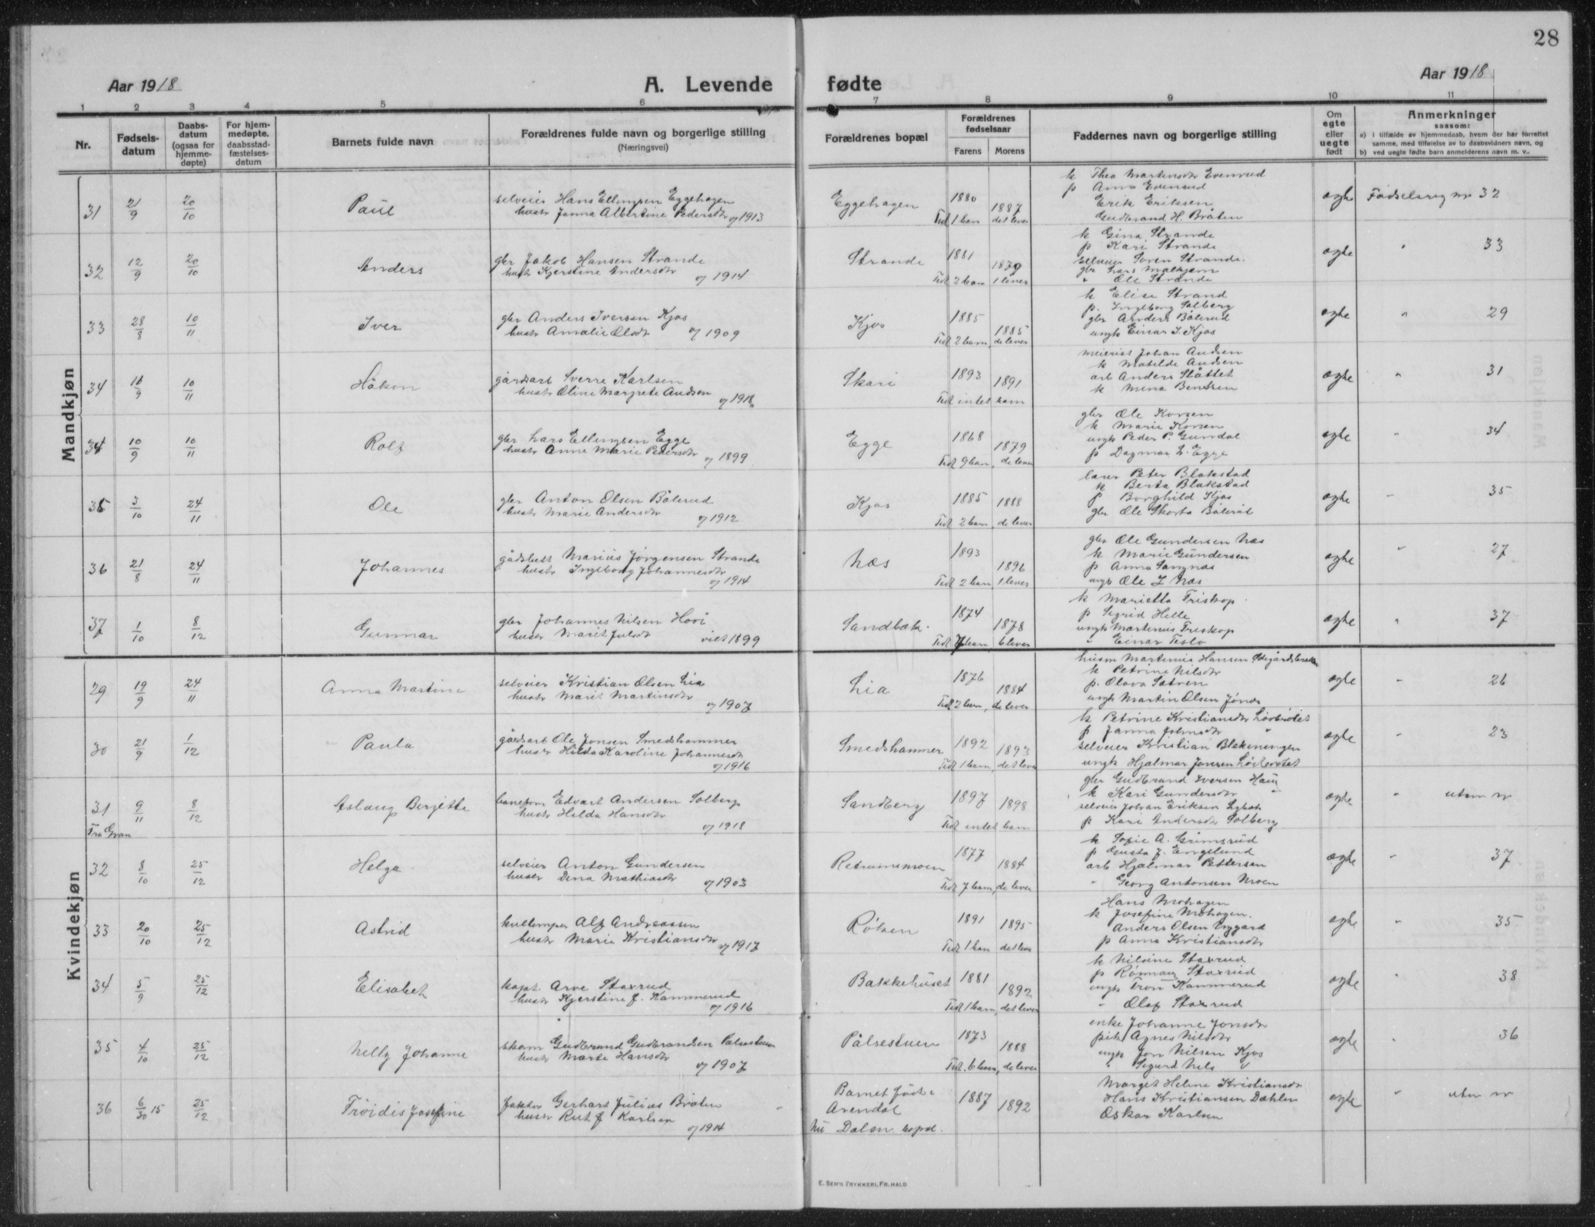 28
Aar 1918
A. Levende fødte
Aar 1918
1 2 3 4 5 6 7 8 9 10 11
Nr.
Fødsels-datum
Daabs-datum (ogsaa for hjemme-døpte)
For hjem-medøpte, daabsstad-fæstelses-datum
Barnets fulde navn
Forældrenes fulde navn og borgerlige stilling
(Næringsvei)
Forældrenes bopæl
Forældrenes fødselsaar
Farens Morens
Faddernes navn og borgerlige stilling
Om egte eller uegte født
Anmerkninger
saasom:
a) i tilfælde av hjemmedaab, hvem der har forrettet samme, med tilføielse av to daabsvidners navn, og
b) ved uegte fødte barn anmelderens navn m. v.
Mandkjøn
31 21/9 20/10 Paul
selveier Hans Ellingsen Eggehagen
hustr Janna Albertine Pedersdr g 1913
Eggehagen 1880 1887
Født 1 barn det lever
k Thea Martinsdr Evenrud
p Anna Evenrud
Erik Eriksen
Gudbrand H. Bråten
egte Fødselsreg nr 32
32 12/9 20/10 Anders
gbr Jakob Hansen Strande
hustr Kjerstine Andersdr g 1914
Strande 1881 1879
Født 2 barn 1 lever
k Gina Strande
p Kari Strande
selveier Soren Strande
" Ole Strande
egte " 33
33 28/8 10/11 Iver
gbr Anders Iversen Kjos
hustr Amalie Olsdr g 1909
Kjos 1885 1885
Født 2 barn, de lever
k Elise Strand
p. Ingeborg Solberg
gbr Anders Bålerud
ungk Einar I. Kjos
egte " 29
34 16/9 10/11 Håkon
gårdarb Sverre Karlsen
hustr Oline Margrete Andsen g 1918
Skari 1893 1891
Født intet barn
meierist Johan Andsen
k Matilde Andsen
arb Anders Slåttet
k Mina Bendsen
egte " 31
34 10/9 10/11 Rolf
gbr Lars Ellingsen Egge
hustr Anne Marie Pedersdr g 1899
Egge 1868 1879
Født 9 barn, de lever
gbr Ole Korsen
k Marie Korsen
ungk Peder P. Gundal
p Dagmar L. Egge
egte " 34
35 3/10 24/11 Ole
gbr Anton Olsen Bålerud
hustr Marie Andersdr g 1912
Kjos 1885 1888
Født 2 barn de lever
lærer Peter Blakstad
k Berta Blakstad
p Borghild Kjos
gbr Ole Bålerud
egte " 35
36 21/8 24/11 Johannes
Marius Jørgensen Strande
hustr Ingeborg Johannesdr g 1914
Næs 1893 1896
Født 2 barn 1 lever
gbr Ole Gundersen Næs
k Marie Gundersen
p Anna Sangnæs
ungk Ole L Næs
egte " 27
37 1/10 8/12 Gunnar
gbr Johannes Nilsen Hovi
hustr Marit Julsdr viet 1899
Sandbæk. 1874 1878
Født 7 barn 6 lever
k Marietta Friskop
p Sigrid Helle
ungk Martenius Friskop
" Einar Teslo
egte " 37
Kvindekjøn
29 19/9 24/11 Anna Martine
selveier Kristian Olsen Lia
hustr Marit Martinsdr g 1907
Lia 1876 1884
Født 2 barn, de lever
husm Martenius Hansen
k Petrine Nilsdr
p. Olava Sætren
ungk Martin Olsen
egte " 26
30 21/9 1/12 Paula
gårdarb Ole Jonsen Smedshammer
hustr Hilda Karoline Johannesdr g 1916
Smedshammer 1892 1893
Født 1 barn, det lever
k Petrine Kristiansdr Løvbråtet
p Janna Johnsdr "
selveier Kristian Blekeningen
ungk Hjalmar Jonsen Løvbråtet
egte " 23
31 9/11 8/12 Aslaug Bergitte
Fra Gran
Edvart Andersen Solberg
hustr Hilda Hansdr g 1918
Sandberg 1897 1898
Født intet barn
gbr Gudbrand Iversen Haug
k Kari Gundersdr "
selveier Johan Eriksen
p Kari Andersdr Solberg
egte " uten nr
32 8/10 25/12 Helga
selveier Anton Gundersen
hustr Dina Mathiasdr g 1903
1877 1884
Født 7 barn, de lever
k Sofie A. Grimsrud
p Gusta J. Engelund
arb Hjalmar Pettersen
" Georg Antonsen Moen
egte " 37
33 20/10 25/12 Astrid
Alf Andreassen
hustr Marie Kristiansdr g 1917
Røken 1891 1895
Født 1 barn det lever
Hans Mohagen
k Josefine Mohagen.
Anders Olsen Nygard
p Anna Kristiansdr
egte " 35
34 5/9 25/12 Elisabet
kapt. Arve Staxrud
hustr Kjerstine f. Hammerud g 1916
Bakkehuset 1881 1892
Født 1 barn, det lever
k Nilsine Staxrud
p Staxrud
ungk Tron Hammerud
" Olaf Staxrud
egte " 38
35 4/10 25/12 Nelly Johanne
skom Gudbrand Gudbrandsen Pålsestuen
hustr Marte Hansdr g 1907
Pålsestuen 1873 1888
Født 6 barn, de lever
enke Johanne Jonsdr
pike Agnes Nilsdr
ungk Jon Nilsen Kjos
" Sigurd Nils "
egte " 36
36 6/10 15 25/12 Frøidis Josefine
Gerhart Julius Bråten
hustr Rut f Karlsen g 1914
Barnet født i Arendal
Nu Dalen bopæl.
1887 1892
Marget Heline Kristiansdr
Hans Kristiansen Dæhlen
Oskar Karlsen
egte " uten nr
E. SEM'S TRYKKERI, FR.HALD